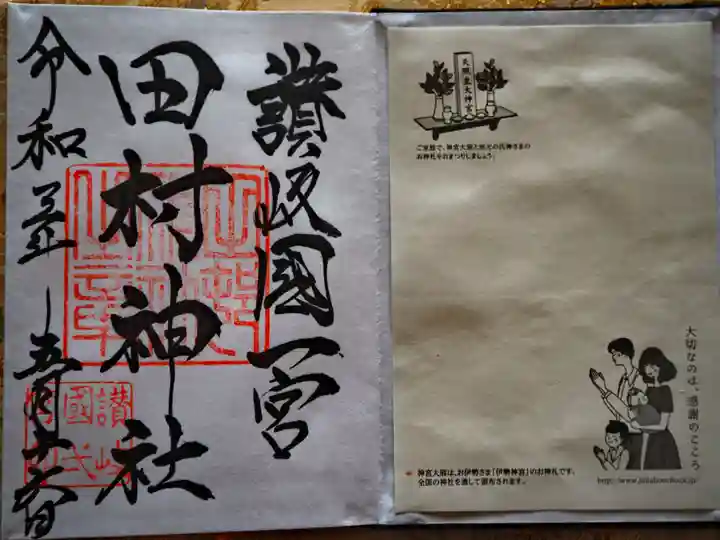 讃岐國一宮
田村神社
令和
五月
讃岐
國
天照皇大神宮
ご家庭で、神宮大麻と地元の氏神さまの
お神札をおまつりしましょう。
大切なのは、感謝のこころ
神宮大麻は、お伊勢さま「伊勢神宮」のお神札です。
全国の神社を通して頒布されます。